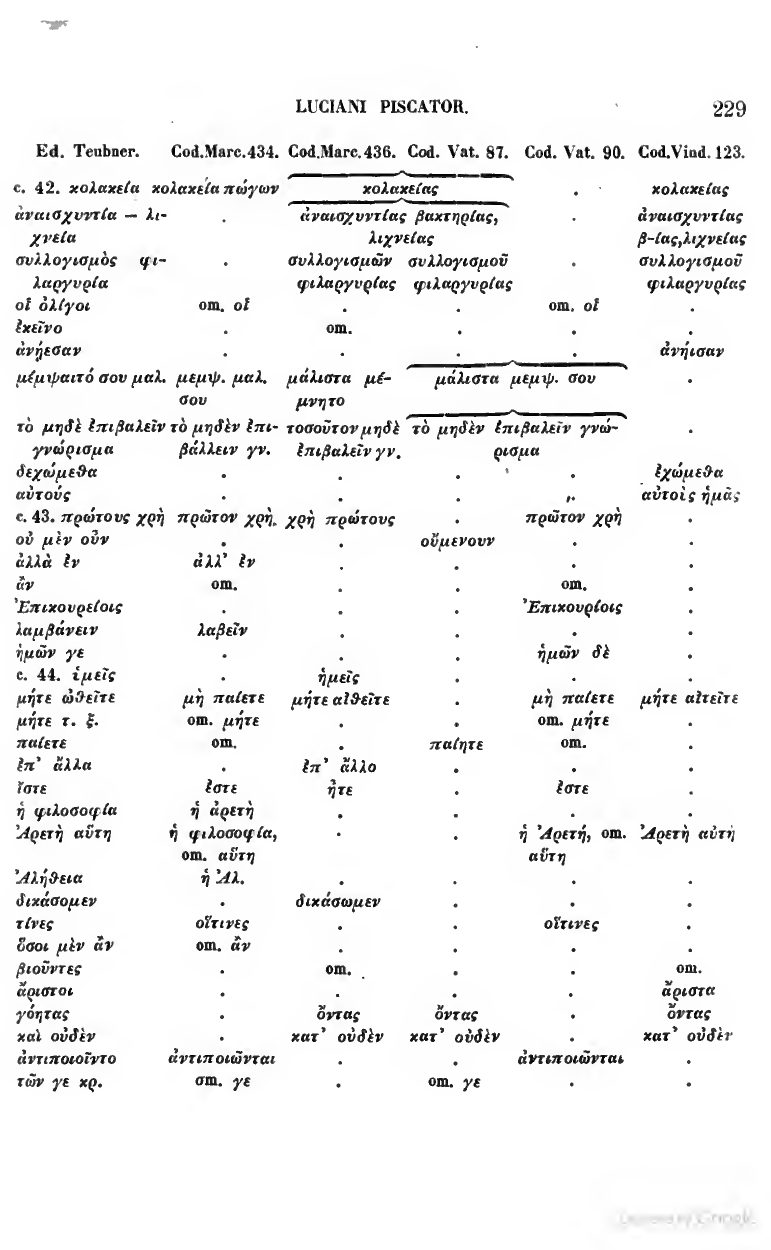 LUCIANI PISCATOR. 229
Ed. Teubner. Cod.Marc.434. Cod.Marc.436. Cod. Vat. 87. Cod. Vat. 90. Cod.Vind. 123.
c. 42. κολακεία κολακεία πώγων κολακείας . κολακείας
ἀναισχυντία — λι- . ἀναισχυντίας βακτηρίας, . ἀναισχυντίας
χνεία λιχνείας β-ίας,λιχνείας
συλλογισμὸς φι- . συλλογισμῶν συλλογισμοῦ . συλλογισμοῦ
λαργυρία φιλαργυρίας φιλαργυρίας φιλαργυρίας
οἱ ὀλίγοι om. οἱ . . om. οἱ .
ἐκεῖνο . om. . . .
ἀνῄεσαν . . . . ἀνήισαν
μέμψαιτό σου μαλ. μεμψ. μαλ. μάλιστα μέ- μάλιστα μεμψ. σου .
σου μνητο
τὸ μηδὲ ἐπιβαλεῖν τὸ μηδὲν ἐπι- τοσοῦτον μηδὲ τὸ μηδὲν ἐπιβαλεῖν γνώ- .
γνώρισμα βάλλειν γν. ἐπιβαλεῖν γν. ρισμα
δεχώμεθα . . . . ἐχώμεθα
αὐτούς . . . . αὐτοὶς ἡμᾶς
c. 43. πρώτους χρὴ πρῶτον χρὴ. χρὴ πρώτους . πρῶτον χρὴ .
οὐ μὲν οὖν . . οὔμενουν . .
ἀλλὰ ἐν ἀλλ’ ἐν . . . .
ἂν om. . . om. .
Ἐπικουρείοις . . . Ἐπικουρίοις .
λαμβάνειν λαβεῖν . . . .
ἡμῶν γε . . . ἡμῶν δὲ .
c. 44. ὑμεῖς . ἡμεῖς . . .
μήτε ὠθεῖτε μὴ παίετε μήτε αἰθεῖτε . μὴ παίετε μήτε αἰτεῖτε
μήτε τ. ξ. om. μήτε . . om. μήτε .
παίετε om. . παίητε om. .
ἐπ’ ἄλλα . ἐπ’ ἄλλο . . .
ἴστε ἐστε ἦτε . ἐστε .
ἡ φιλοσοφία ἡ ἀρετὴ . . . .
Ἀρετὴ αὕτη ἡ φιλοσοφία, . . ἡ Ἀρετή, om. Ἀρετὴ αὐτὴ
om. αὕτη αὕτη
Ἀλήθεια ἡ Ἀλ. . . . .
δικάσομεν . δικάσωμεν . . .
τίνες οἵτινες . . οἵτινες .
ὅσοι μὲν ἂν om. ἂν . . . .
βιοῦντες . om. . . om.
ἄριστοι . . . . ἄριστα
γόητας . ὄντας ὄντας . ὄντας
καὶ οὐδὲν . κατ’ οὐδὲν κατ’ οὐδὲν . κατ’ οὐδὲν
ἀντιποιοῖντο ἀντιποιῶνται . . ἀντιποιῶνται .
τῶν γε κρ. om. γε . om. γε . .